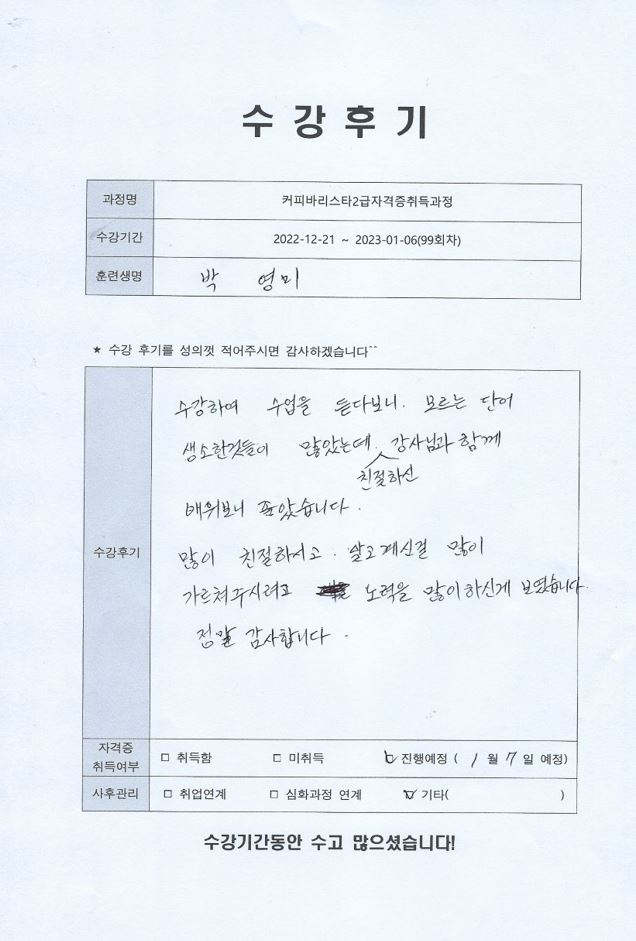 수 강 후 기
과정명 커피바리스타2급자격증취득과정
수강기간 2022-12-21 ~ 2023-01-06(99회차)
훈련생명 박 영미
★ 수강 후기를 성의껏 적어주시면 감사하겠습니다^^
수강하여 수업을 듣다보니. 모르는 단어
생소한것들이 많았는데. 친절하신 강사님과 함께
배워보니 좋았습니다.
수강후기
많이 친절하시고. 알고계신걸 많이
가르쳐주시려고 노력을 많이하신게 보였습니다.
정말 감사합니다.
자격증
취득여부 □ 취득함 □ 미취득 ☑ 진행예정 ( 1 월 7 일 예정)
사후관리 □ 취업연계 □ 심화과정 연계 ☑ 기타( )
수강기간동안 수고 많으셨습니다!